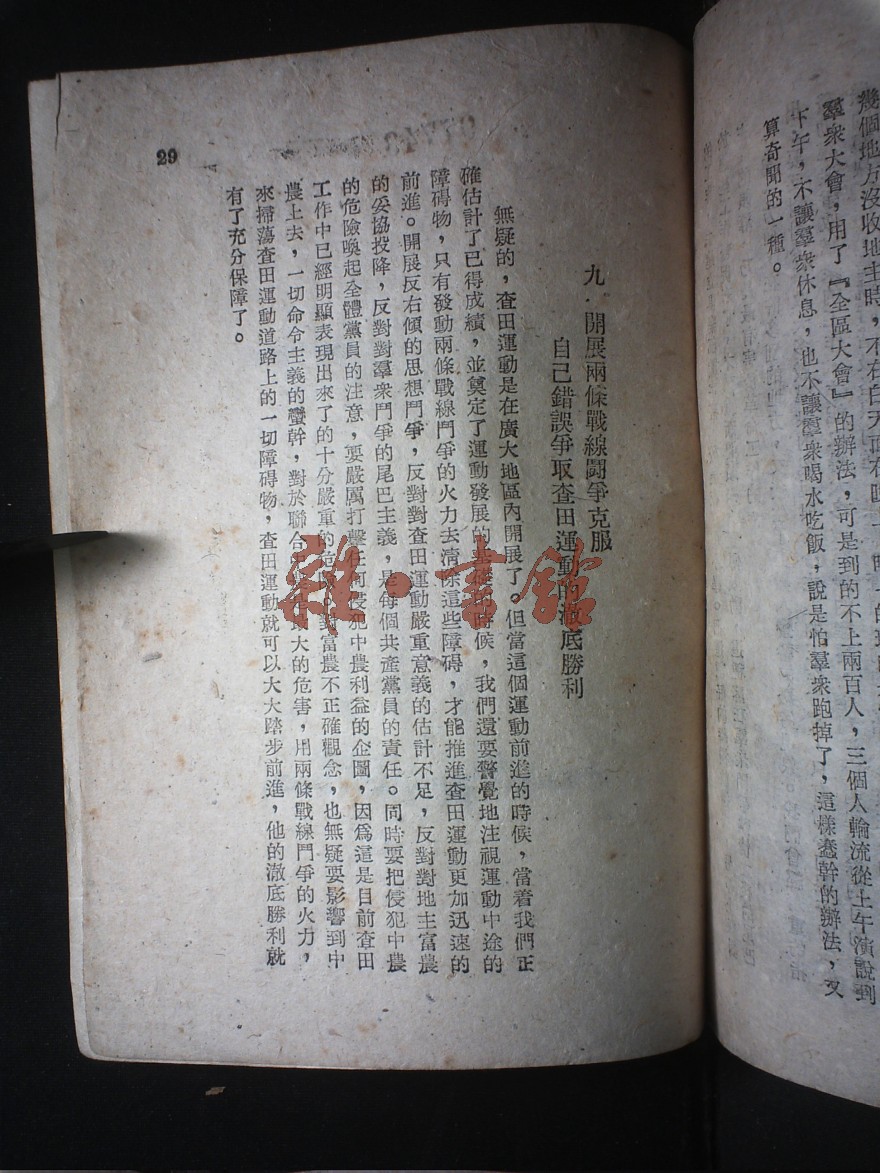 幾個地方沒收地主時，不在白天而在晚
羣衆大會，用了『全區大會』的辦法，可是到的不上兩百人，三個人輪流從上午演說到
下午，不讓羣衆休息，也不讓羣衆喝水吃飯，說是怕羣衆跑掉了，這樣蠢幹的辦法，又
算奇聞的一種。
九．開展兩條戰線鬪爭克服
自己錯誤爭取查田運動的澈底勝利
無疑的，查田運動是在廣大地區內開展了。但當這個運動前進的時候，當着我們正
確估計了已得成績，並奠定了運動發展的基礎的時候，我們還要警覺地注視運動中途的
障碍物，只有發動兩條戰線鬥爭的火力去清除這些障碍，才能推進查田運動更加迅速的
前進。開展反右傾的思想鬥爭，反對對查田運動嚴重意義的估計不足，反對對地主富農
的妥協投降，反對對羣衆鬥爭的尾巴主義，是每個共產黨員的責任。同時要把侵犯中農
的危險喚起全體黨員的注意，要嚴厲打擊任何侵犯中農利益的企圖，因爲這是目前查田
工作中已經明顯表現出來了的十分嚴重的危險。對富農不正確觀念，也無疑要影響到中
農上去，一切命令主義的蠻幹，對於聯合中農是最大的危害，用兩條戰線鬥爭的火力，
來掃蕩查田運動道路上的一切障碍物，查田運動就可以大大踏步前進，他的澈底勝利就
有了充分保障了。
29
雜·書館